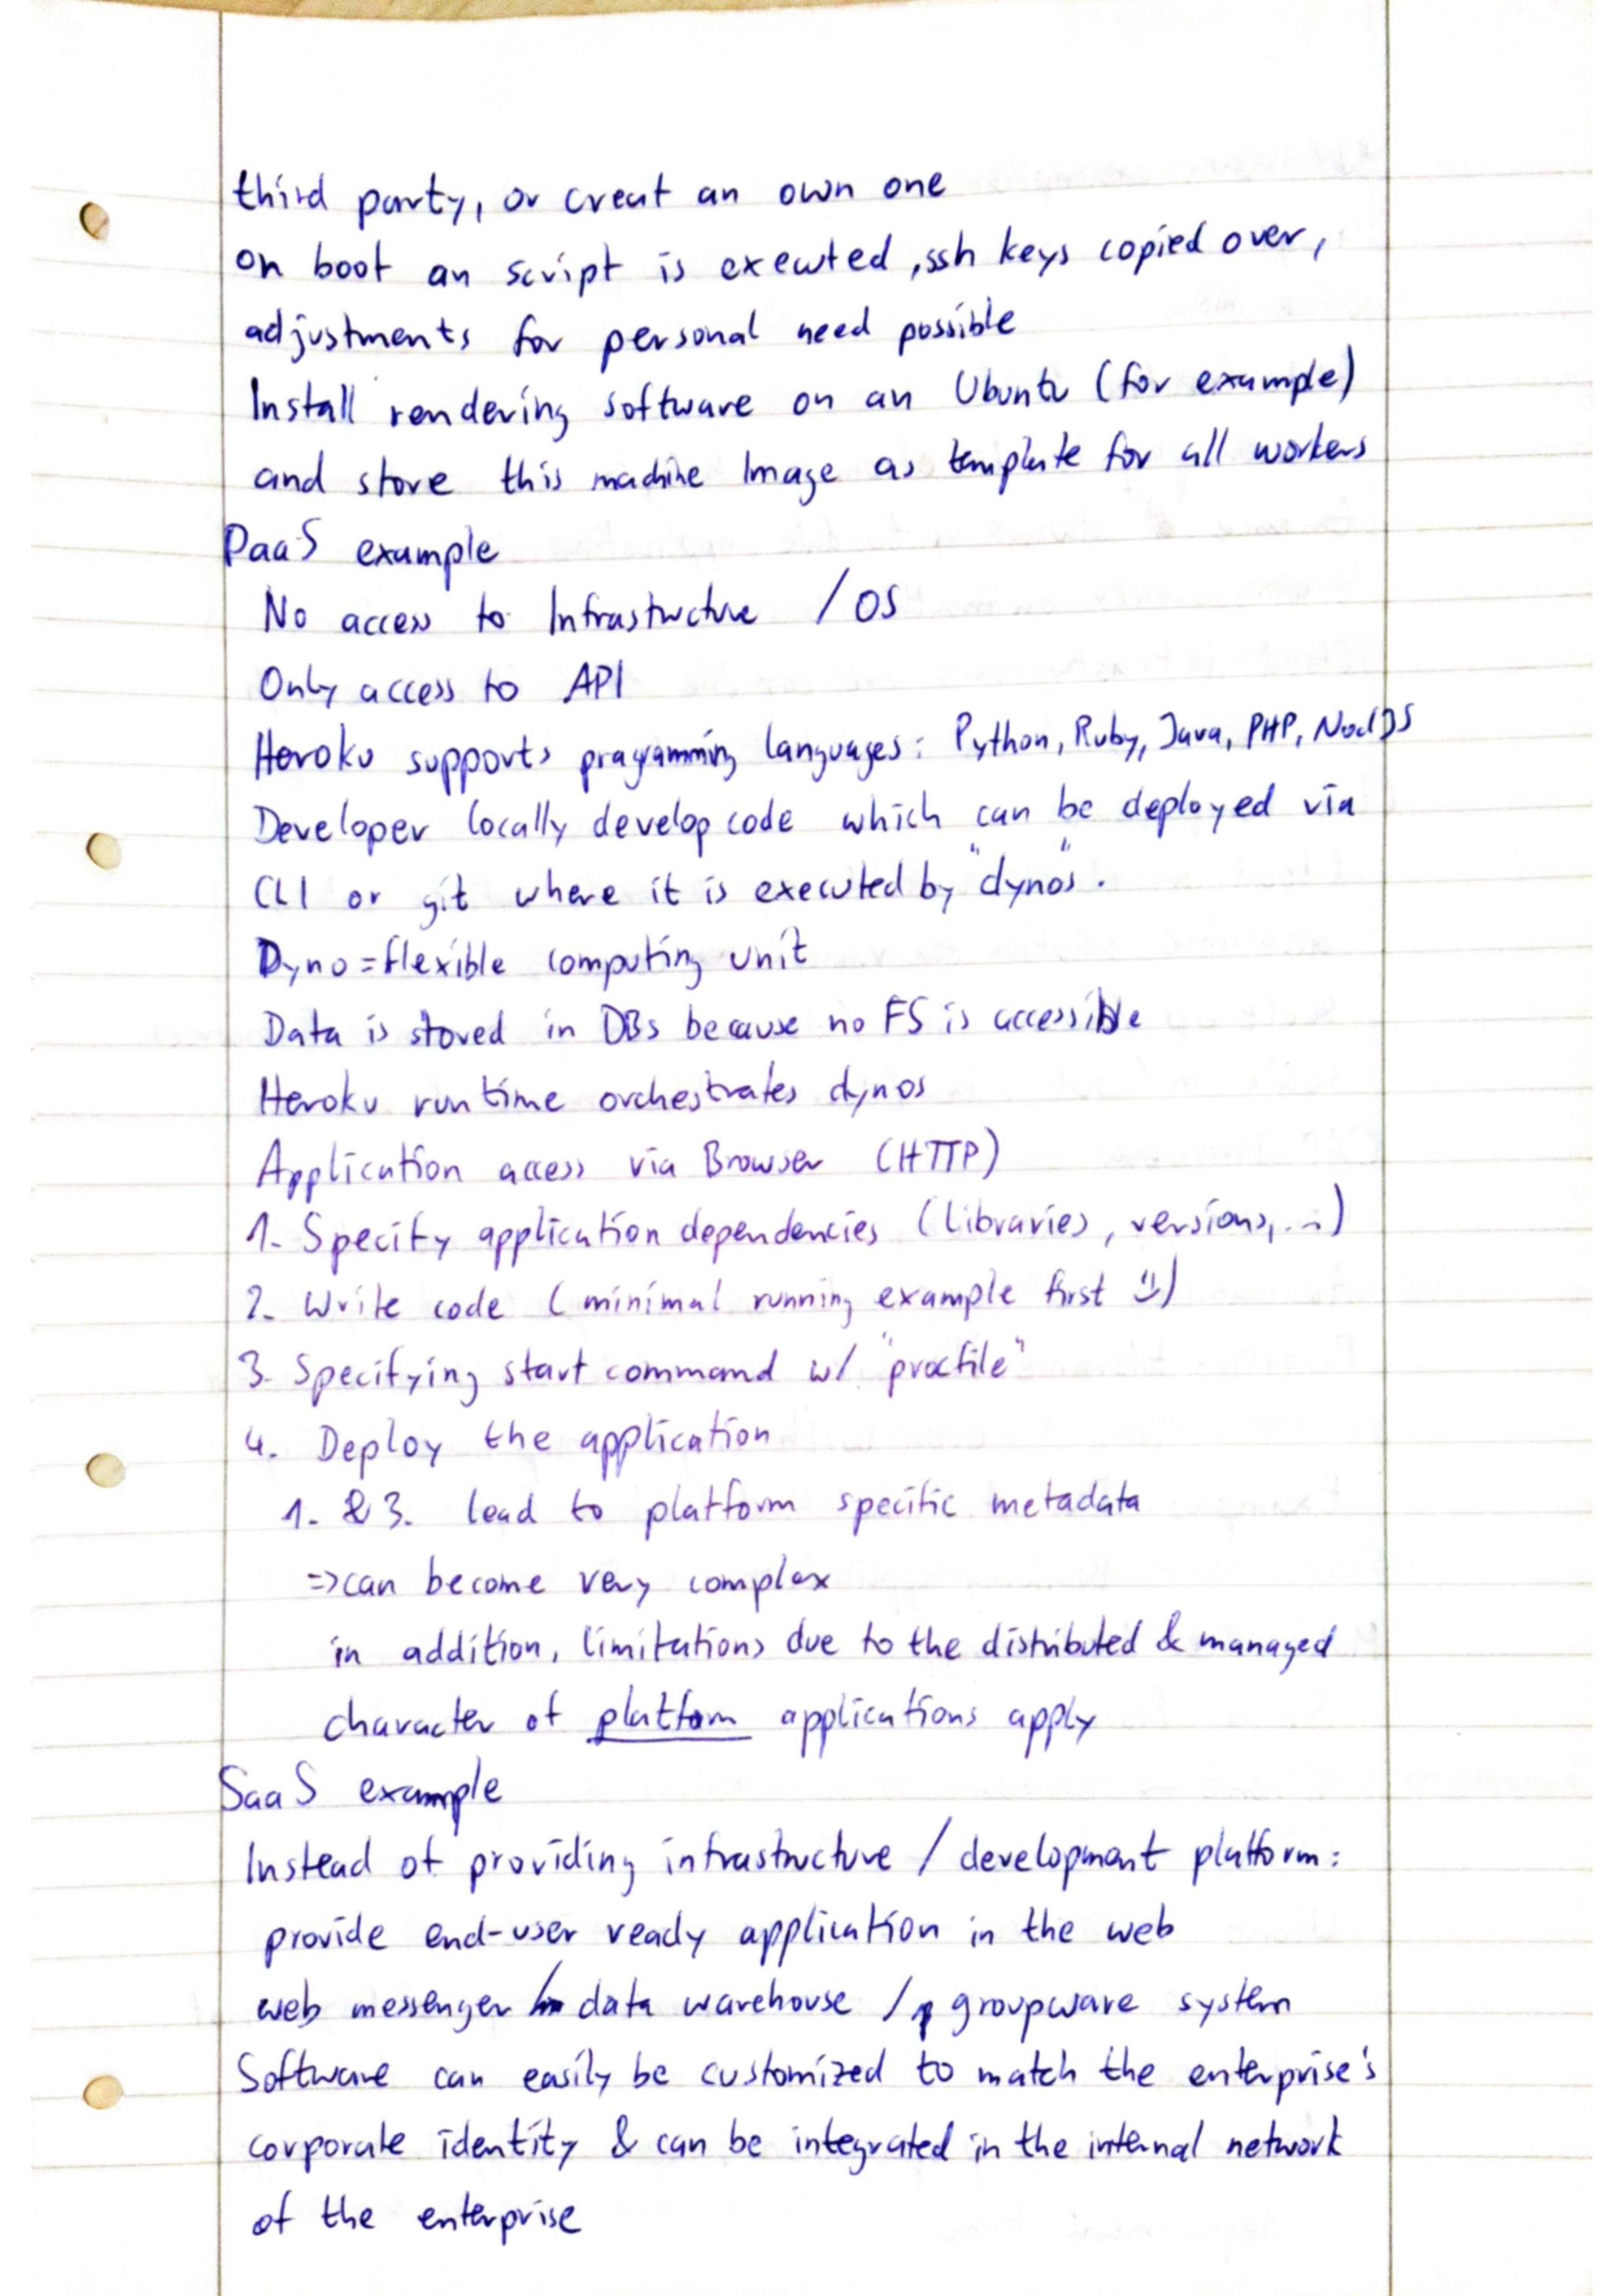 third party, or creat an own one
on boot an script is executed, ssh keys copied over,
adjustments for personal need possible
Install rendering software on an Ubuntu (for example)
and store this machine Image as template for all workers
PaaS example
No access to Infrastructure / OS
Only access to API
Heroku supports programming languages: Python, Ruby, Java, PHP, NodeJS
Developer locally develop code which can be deployed via
CLI or git where it is executed by "dynos".
Dyno = flexible computing unit
Data is stored in DBs because no FS is accessible
Heroku runtime orchestrates dynos
Application access via Browser (HTTP)
1. Specify application dependencies (libraries, versions, ...)
2. Write code (minimal running example first :))
3. Specifying start command w/ "procfile"
4. Deploy the application
1. & 3. lead to platform specific metadata
=> can become very complex
in addition, limitations due to the distributed & managed
character of platform applications apply
SaaS example
Instead of providing infrastructure / development platform:
provide end-user ready application in the web
web messenger / data warehouse / groupware system
Software can easily be customized to match the enterprise's
corporate identity & can be integrated in the internal network
of the enterprise